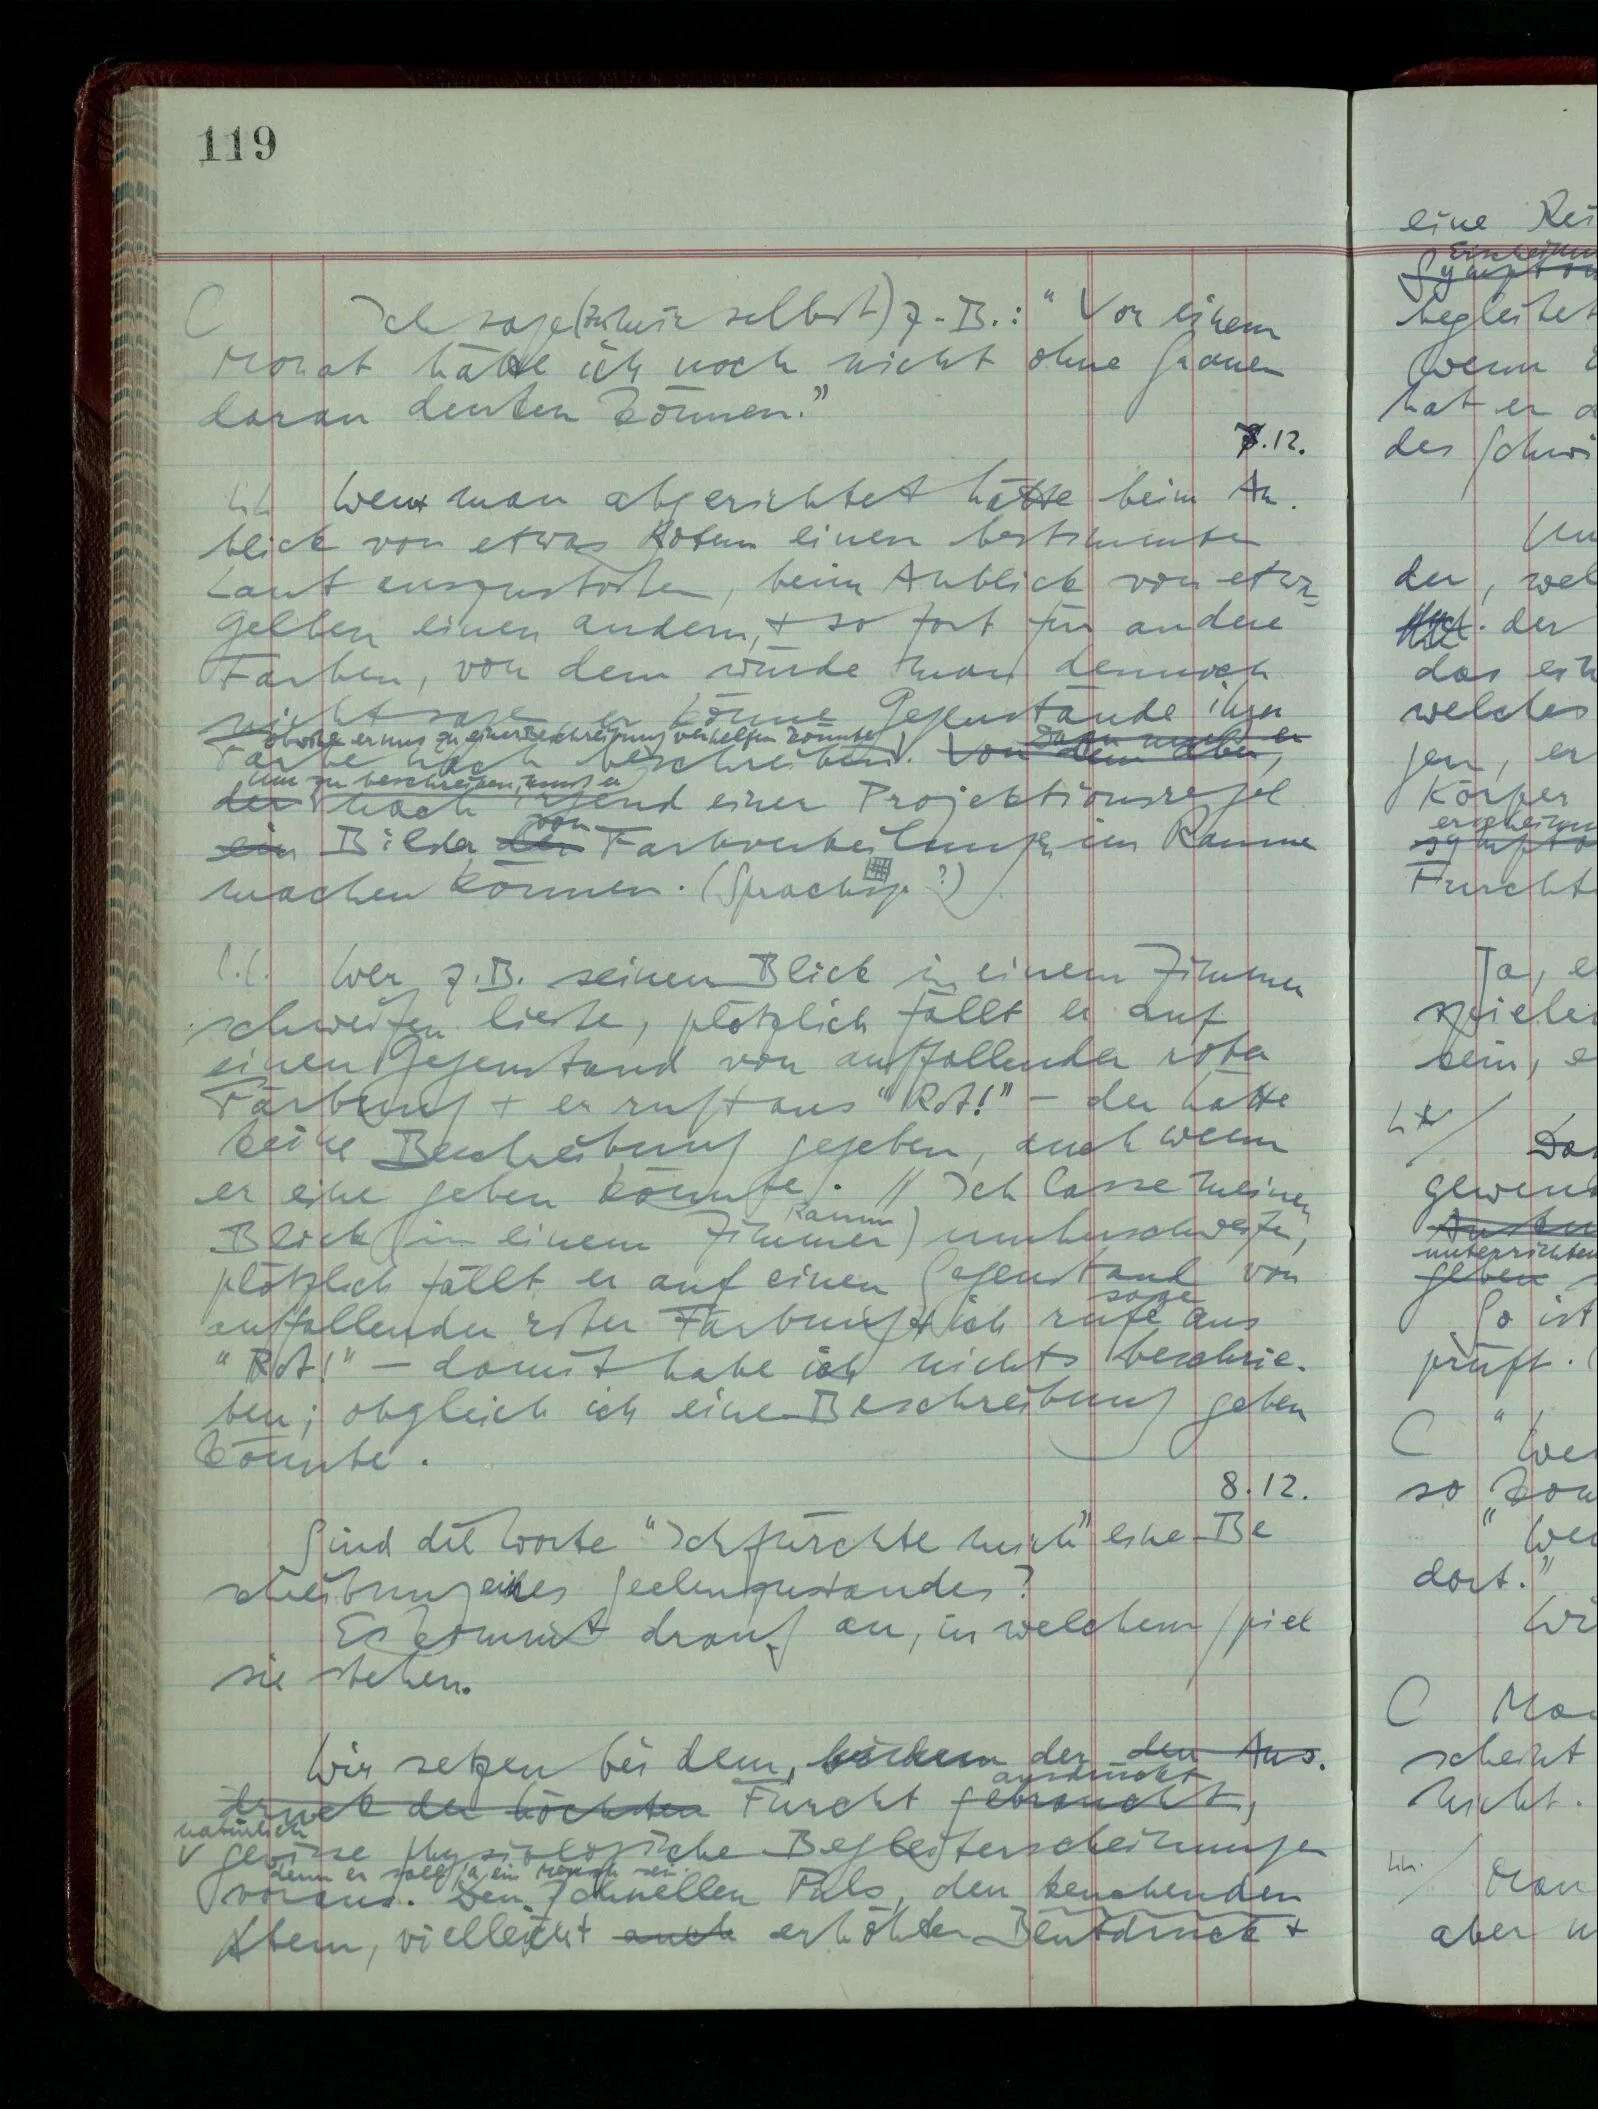 119
C Ich sage (zu mir selbst) z.B.: "Vor einem
Monat hätte ich noch nicht ohne Grauen
daran denken können."
7.12.
Wenn man abgerichtet hätte beim An-
blick von etwas Rotem einen bestimmten
Laut auszustoßen, beim Anblick von etwas
Gelben einen andern, + so fort für andere
Farben, von dem würde man dennoch
nicht sagen er könne Gegenstände ihrer
obwohl er uns zu einer Beschreibung verhelfen könnte
Dazu muß er
Farbe nach beschreiben. Von dem aber,
um zu beschreiben, muß er
der nach irgend einer Projektionsregel
von
ein Bilder der Farbverteilungen im Raume
machen können. (Sprachsp ?)
Wer z.B. seinen Blick in einem Zimmer
schweifen ließe, plötzlich fällt er auf
einen Gegenstand von auffallender roter
Färbung + er ruft aus "Rot!" – der hätte
keine Beschreibung gegeben, auch wenn
er eine geben könnte. // Ich lasse meinen
Raum
Blick (in einem Zimmer) umherschweifen,
plötzlich fällt er auf einen Gegenstand von
sage
auffallender roter Färbung + ich rufe aus
"Rot!" – damit habe ich nichts beschrie-
ben; obgleich ich eine Beschreibung geben
könnte.
8.12.
Sind die Worte "Ich fürchte mich" eine Be
schreibung eines Seelenzustandes?
Es kommt drauf an, in welchem Spiel
sie stehen.
Wir setzen bei dem, der den Aus-
ausdrückt
druck der höchsten Furcht gebraucht,
natürlich
gewisse physiologische Begleiterscheinungen
denn er soll ja ein Mensch sein.
voraus. Den schnellen Puls, den keuchenden
Atem, vielleicht auch erhöhten Blutdruck +
eine
begleitet
wenn
hat er
des
der
das
welches
Körper
Furcht
Ja,
sein,
unterrichten
geben
So ist
prüft.
C "
so
"
dort."
C
scheint
nicht.
Man
aber